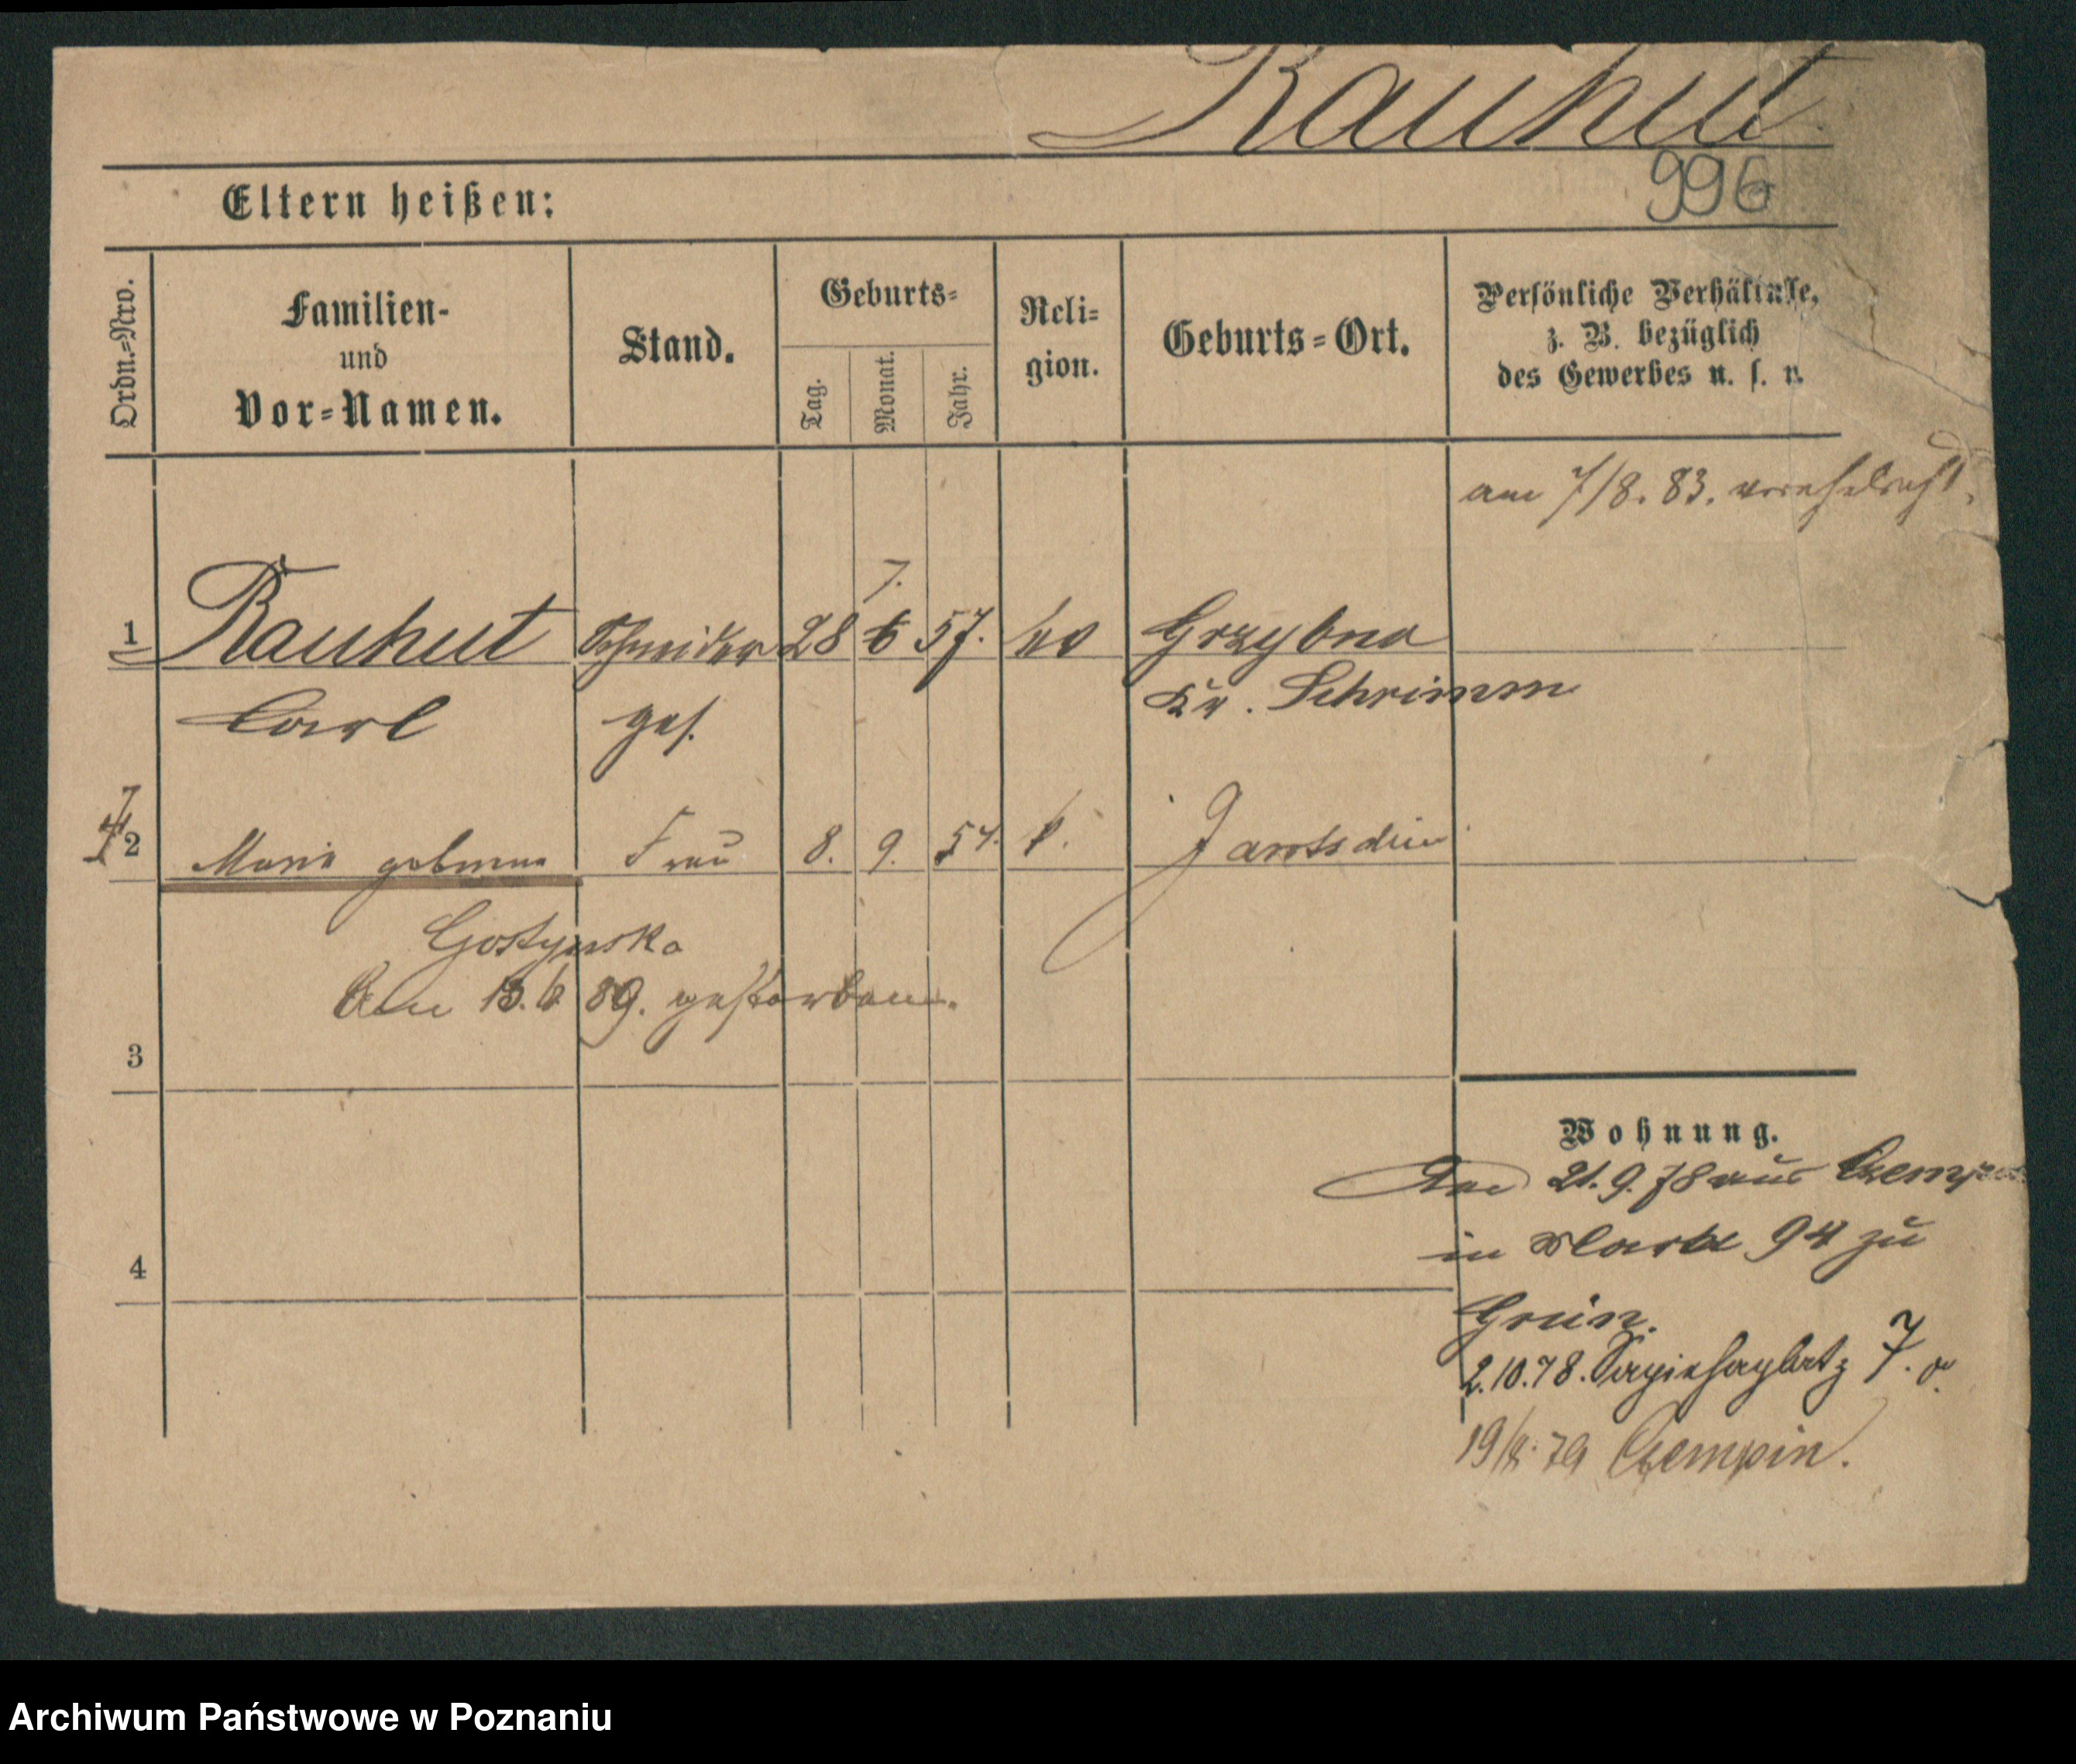 Rauhut
996
Eltern heißen:
Ordn.=Nro.
Familien-
und
Vor=Namen.
Stand.
Geburts=
Tag.
Monat.
Jahr.
Reli=
gion.
Geburts=Ort.
Persönliche Verhältnisse,
z. B. bezüglich
des Gewerbes u. s. w.
am 7/8. 83. verehelicht.
7.
1 Rauhut Schneider 28 6 57. ev Grzybno
Carl ges. Kr. Schrimm
2 Marie geborene Frau 8. 9. 54. k. Jarotschin
Gostynska
Am 13. 6 89. gestorben.
3
Wohnung.
Am 21. 9. 78 aus Czempin
in Markt 94 zu
4
Grün.
2. 10. 78. Sapiehaplatz 7.
19/8. 79 Czempin.
Archiwum Państwowe w Poznaniu